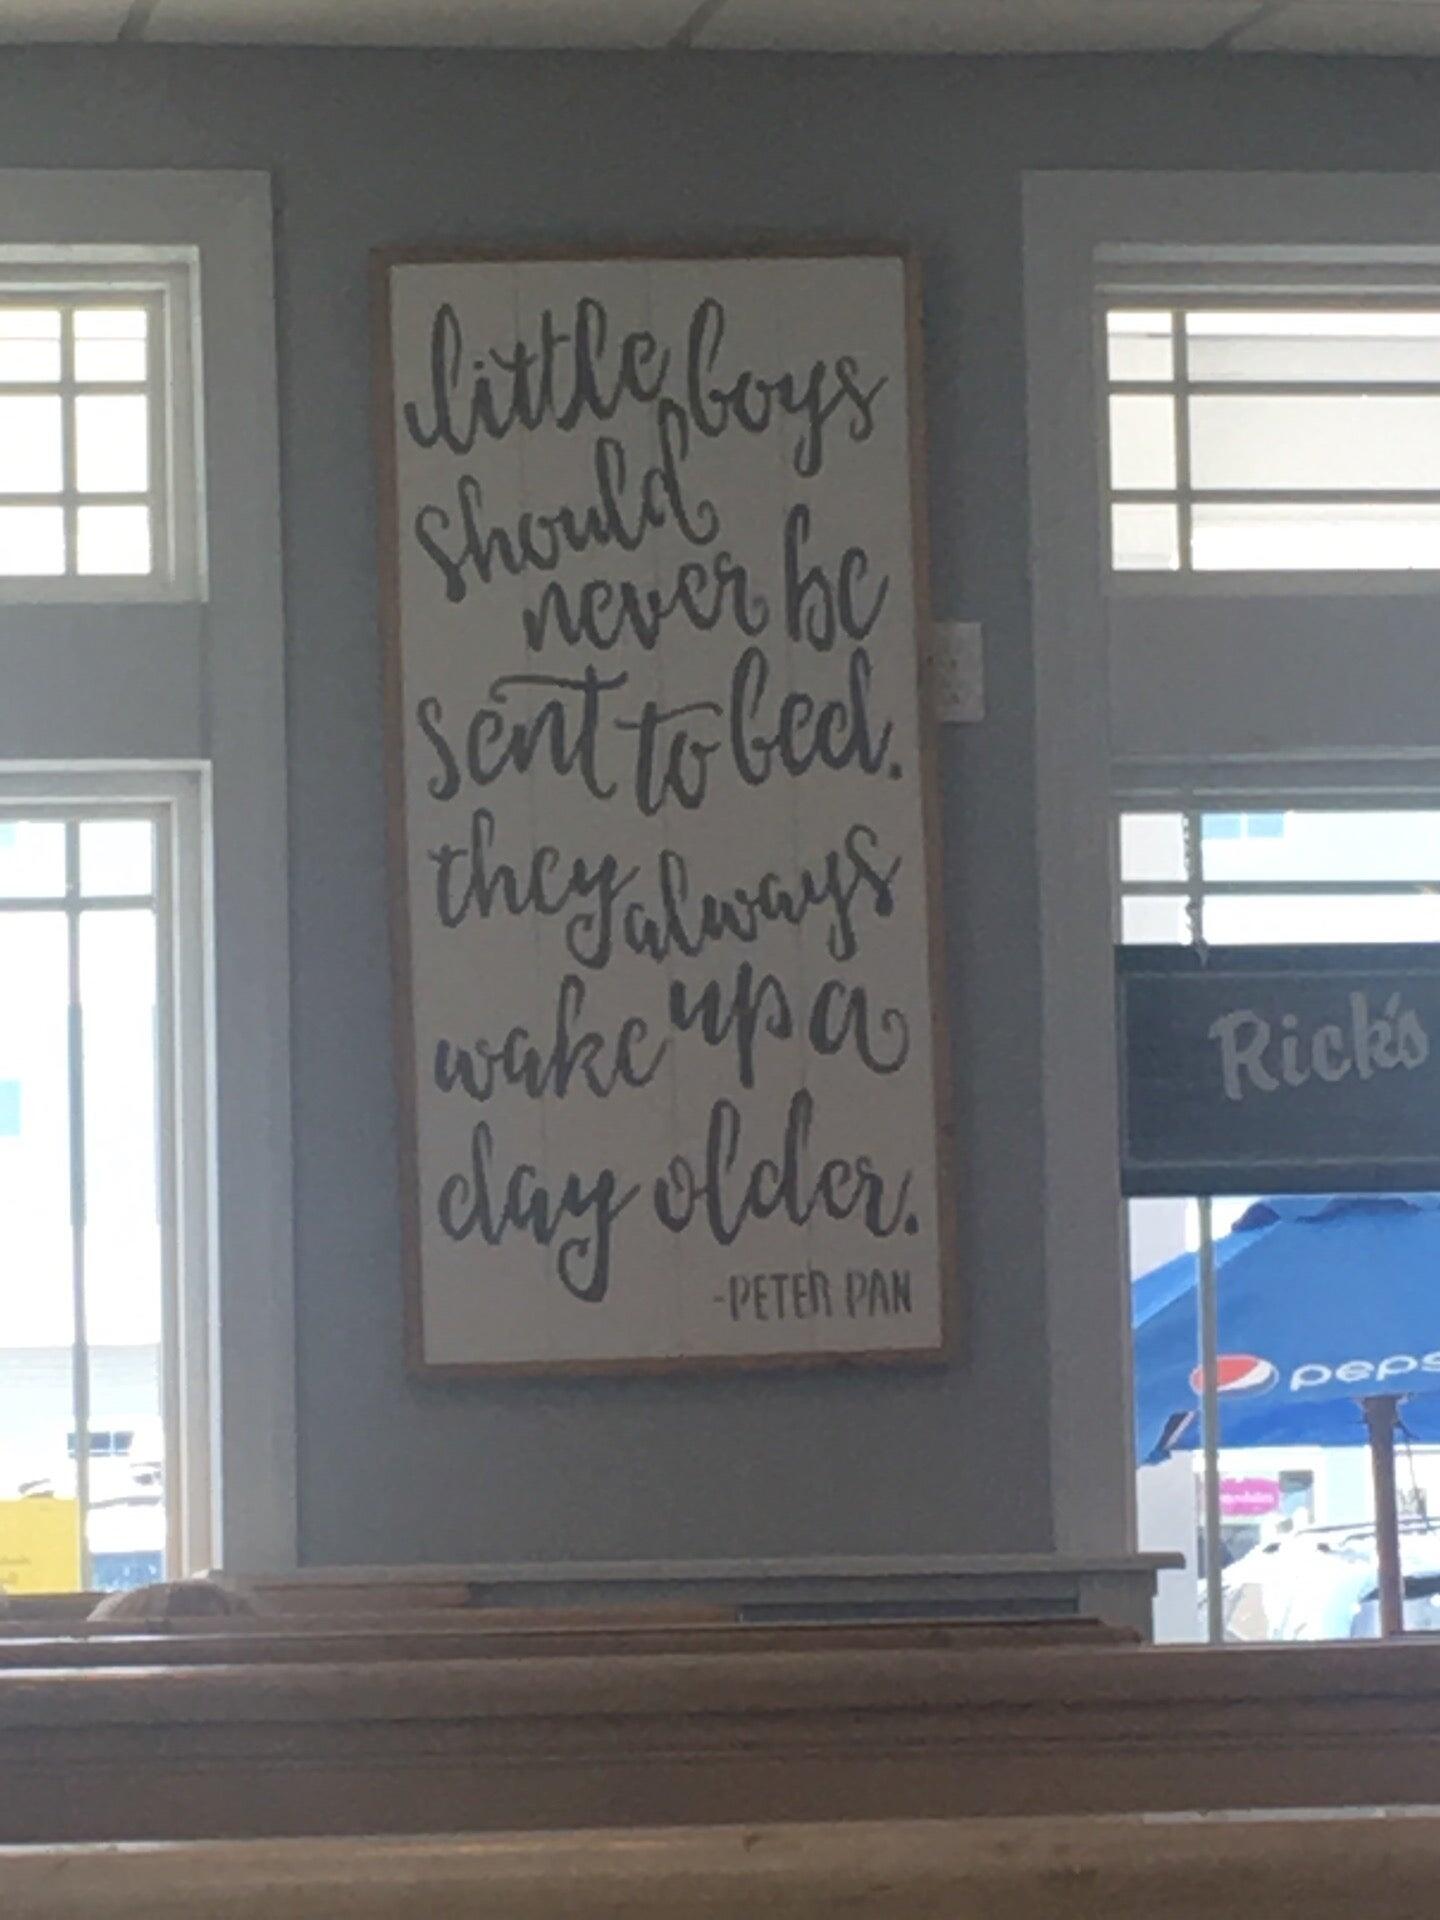 little boys
should
never be
sent to bed.
they always
wake up a
day older.
-PETER PAN
Rick's
peps